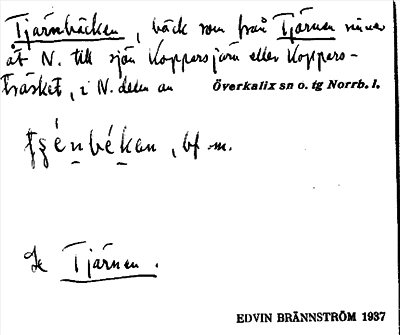 Tjärnbäcken, bäck som från Tjärnen rinner
åt N. till sjön Koppersjärn eller Koppers-
träsket, i N. delen av Överkalix sn o. tg Norrb. l.
bf m.
Se Tjärnen.
EDVIN BRÄNNSTRÖM 1937